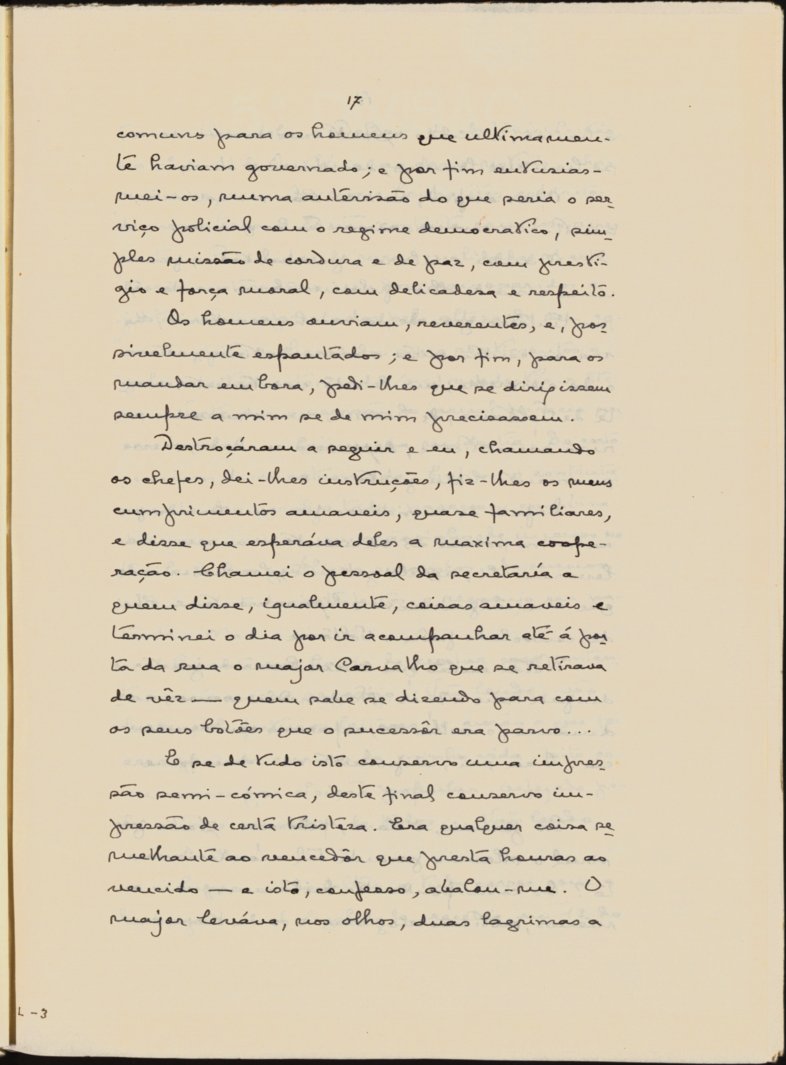 17
comuns para os homens que ultimamen-
te haviam governado; e por fim entusias-
mei-os, numa antevisão do que seria o ser-
viço policial com o regime democratico, sim-
ples missão de cordura e de paz, com presti-
gio e força moral, com delicadesa e respeito.
Os homens ouviam, reverentes, e, pos-
sivelmente espantados; e por fim, para os
mandar embora, pedi-lhes que se dirigissem
sempre a mim se de mim precisassem.
Destroçáram a seguir e eu, chamando
os chefes, dei-lhes instruções, fiz-lhes os meus
cumprimentos amaveis, quase familiares,
e disse que esperáva deles a maxima coope-
ração. Chamei o pessoal da secretaría a
quem disse, igualmente, coisas amaveis e
terminei o dia por ir acompanhar até á por-
ta da rua o major Carvalho que se retirava
de vêz — quem sabe se dizendo para com
os seus botões que o sucessôr era parvo...
E se de tudo isto conservo uma impres-
são semi-cómica, deste final conservo im-
pressão de certa tristeza. Era qualquer coisa se-
melhante ao vencedôr que presta honras ao
vencido — e isto, confesso, abalou-me. O
major leváva, nos olhos, duas lagrimas a
L-3